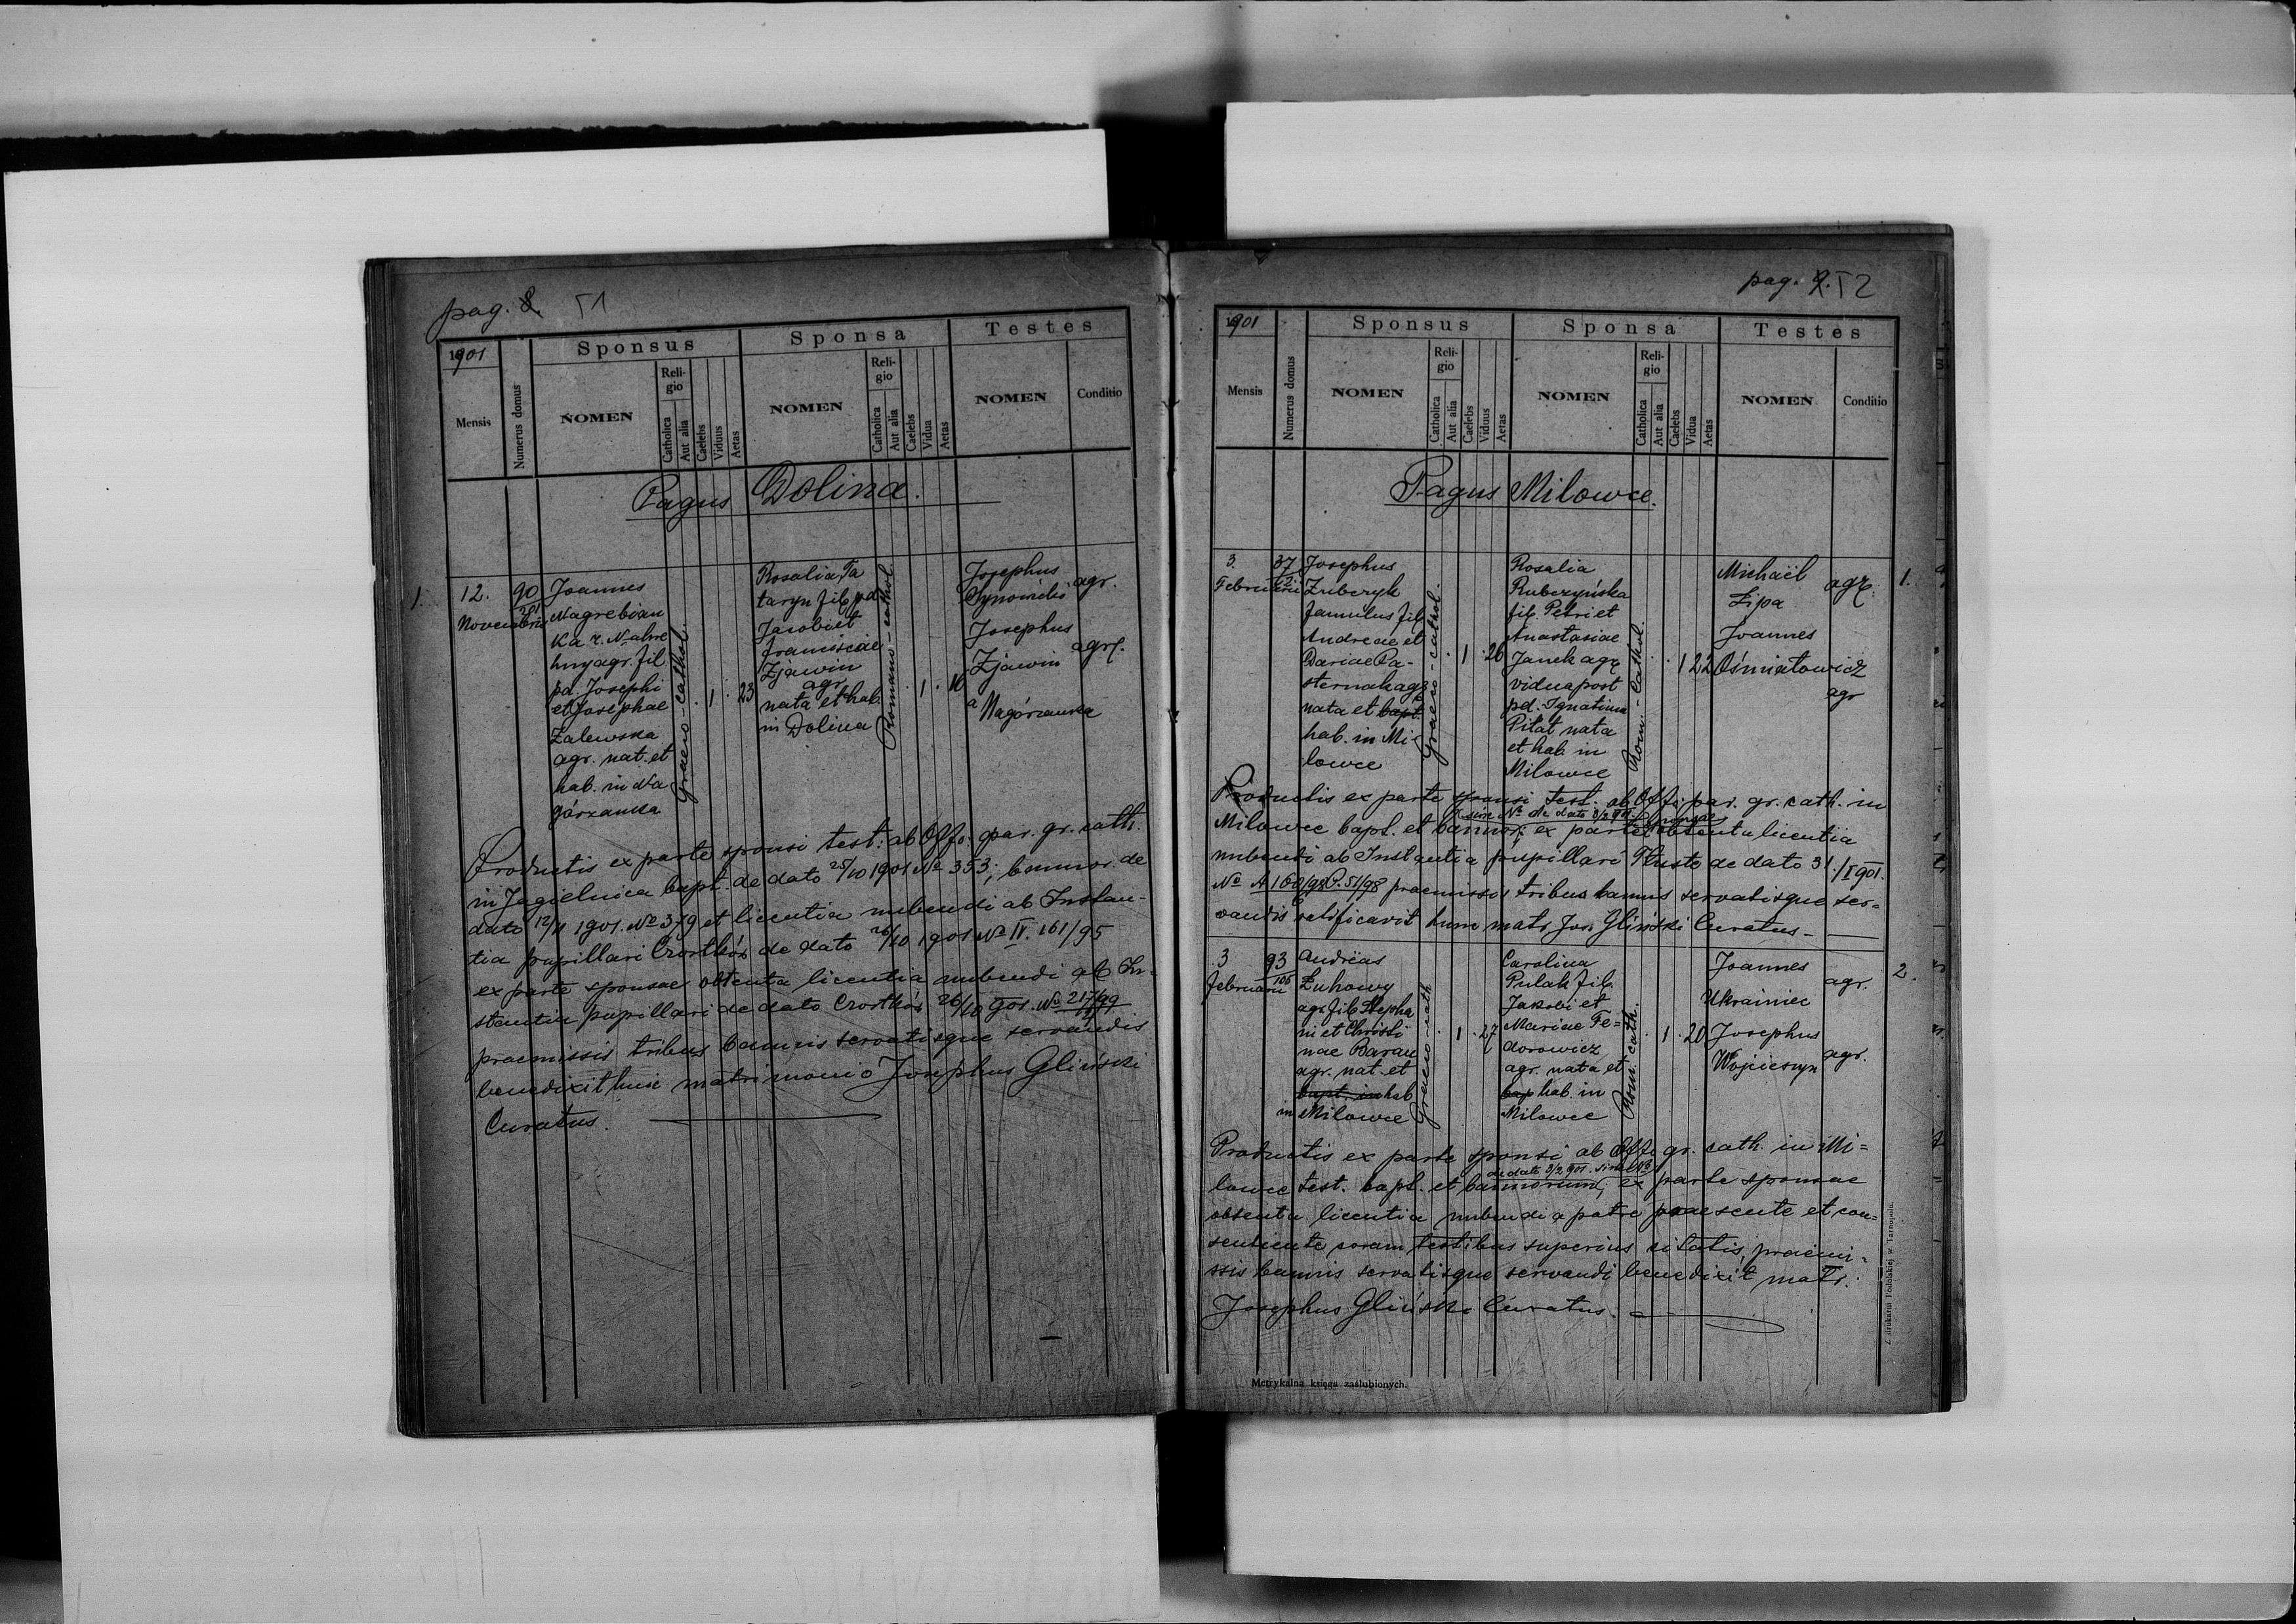 pag. 8. 51
1901
Mensis
Numerus domus
Sponsus
NOMEN
Reli-
gio
Catholica
Aut alia
Caelebs
Viduus
Aetas
Sponsa
NOMEN
Reli-
gio
Catholica
Aut alia
Caelebs
Vidua
Aetas
Testes
NOMEN
Conditio
Pagus Dolina.
1.
12.
Novembris
90
201
Joannes
Nagrebian
ka r.
hny agr. fil
pd. Josephi
et Josephae
Zalewska
agr. nat. et
hab. in Na
górzanka
Graeco-cathol.
. 1 . 23
Rosalia Ta
taryn fil. pd
Jacobi et
Franciscae
Zjawin
agr.
nata et hab.
in Dolina
Romano-cathol.
. 1 . 16
Josephus
agr.
Josephus
Zjawin agr.
a Nagórzanka
Productis ex parte sponsi test: ab Offo. par. gr. cath.
in Jagielnica bapt. de dato 25/10 1901 No 353; bannor. de
dato 12/11 1901. No 379 et licentia nubendi ab Instan-
tia pupillari Czortków de dato 26/10 1901 No IV. 161/95
ex parte sponsae obtenta licentia nubendi ab In-
stantia pupillari de dato Czortków 26/10 901. No 217/99
praemissis tribus bannis servatisque servandis
benedixit huic matrimonio Josephus Gliński
Curatus.
pag. 9. 52
1901
Mensis
Numerus domus
Sponsus
NOMEN
Reli-
gio
Catholica
Aut alia
Caelebs
Viduus
Aetas
Sponsa
NOMEN
Reli-
gio
Catholica
Aut alia
Caelebs
Vidua
Aetas
Testes
NOMEN
Conditio
Pagus Milowce.
3.
Februarii
37
Josephus
Zuberyk
famulus fil
Andreae et
Dariae Pa-
sternak agr
nata et bapt.
hab. in Mi-
lowce
Graeco-cathol.
. 1 . 26
Rosalia
Rubczyńska
fil. Petri et
Anastasiae
Janek agr
vidua post
pd. Ignatium
Pitat nata
et hab. in
Milowce
Rom.-cathol.
. . 1 22
Michaël agr.
Zipa
Joannes
Ośmiałowicz
agr
1.
Productis ex parte sponsi test. ab Offo par. gr. cath. in
sine No de dato 3/2 901. sponsae
Milowce bapt. et bannor; ex parte obtenta licentia
nubendi ab Instantia pupillari Tłuste de dato 31./I 901.
No A 160/98 P. 51/98 praemissis tribus bannis servatisque ser=
vandis ratificavit hunc matr. Jos. Gliński Curatus-
3
Februarii
93
106
Andreas
Łuhowy
agr. fil. Stepha
ni et Christi
nae Baran
agr. nat. et
bapt. in hab
in Milowce
Graeco-cath
. 1 . 27
Carolina
Pulak fil.
Jakobi et
Mariae Fe=
dorowicz
agr. nata et
bap hab. in
Milowce
Rom. cath.
. 1 . 20
Joannes
Ukrainiec agr.
Josephus
Wojcieszyn agr.
2.
Productis ex parte sponsi ab Offo gr. cath. in Mi=
de dato 3/2 901. sine No
lowce test. bapt. et bannorum; ex parte sponsae
obtenta licentia nubendi a patre praesente et con=
sentiente coram testibus superius citatis, praemi=
ssis bannis servatisque servandi benedixit matr.
Josephus Gliński Curatus.
Metrykalna księga zaślubionych.
Z drukarni Podolskiej w Tarnopolu.